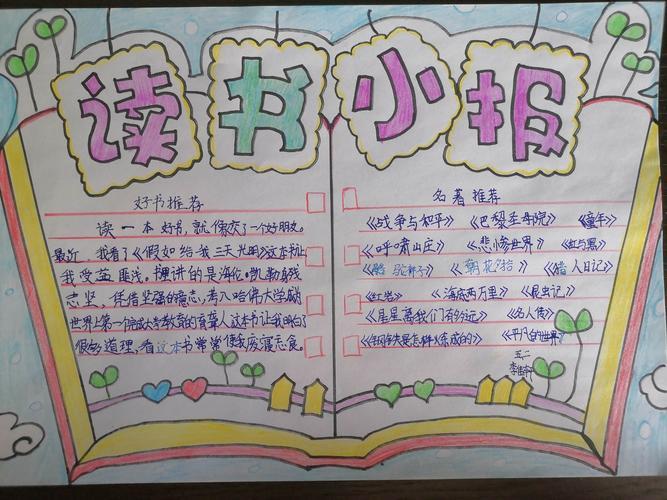 读书小报
好书推荐
读一本好书,就像交了一个好朋友。
最近,我看了《假如给我三天光明》这本书让
我受益匪浅。书里讲的是海伦·凯勒身残
志坚,凭借坚强的意志,考入哈佛大学成
世界上第一个完成大学教育的盲聋人这本书让我明白了
很多道理,看这本书常常使我废寝忘食。
名著推荐
《战争与和平》 《巴黎圣母院》 《童年》
《呼啸山庄》 《悲惨世界》 《红与黑》
《骆驼祥子》 《朝花夕拾》 《猎人日记》
《红岩》 《海底两万里》 《昆虫记》
《星星离我们有多远》 《名人传》
《钢铁是怎样炼成的》 《平凡的世界》
五、二